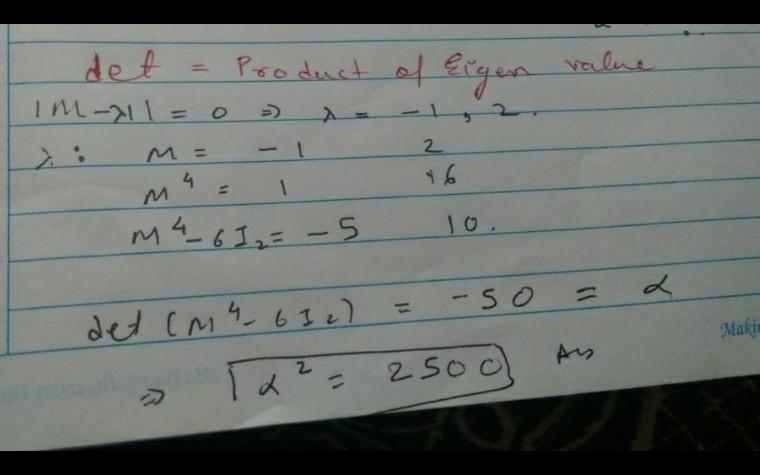 det = Product of Eigen value
|M-λI| = 0 ⇒ λ = -1, 2.
λ: M = -1 2
M⁴ = 1 16
M⁴-6I₂ = -5 10.
det (M⁴-6I₂) = -50 = α
Makin
⇒ α² = 2500 Ans